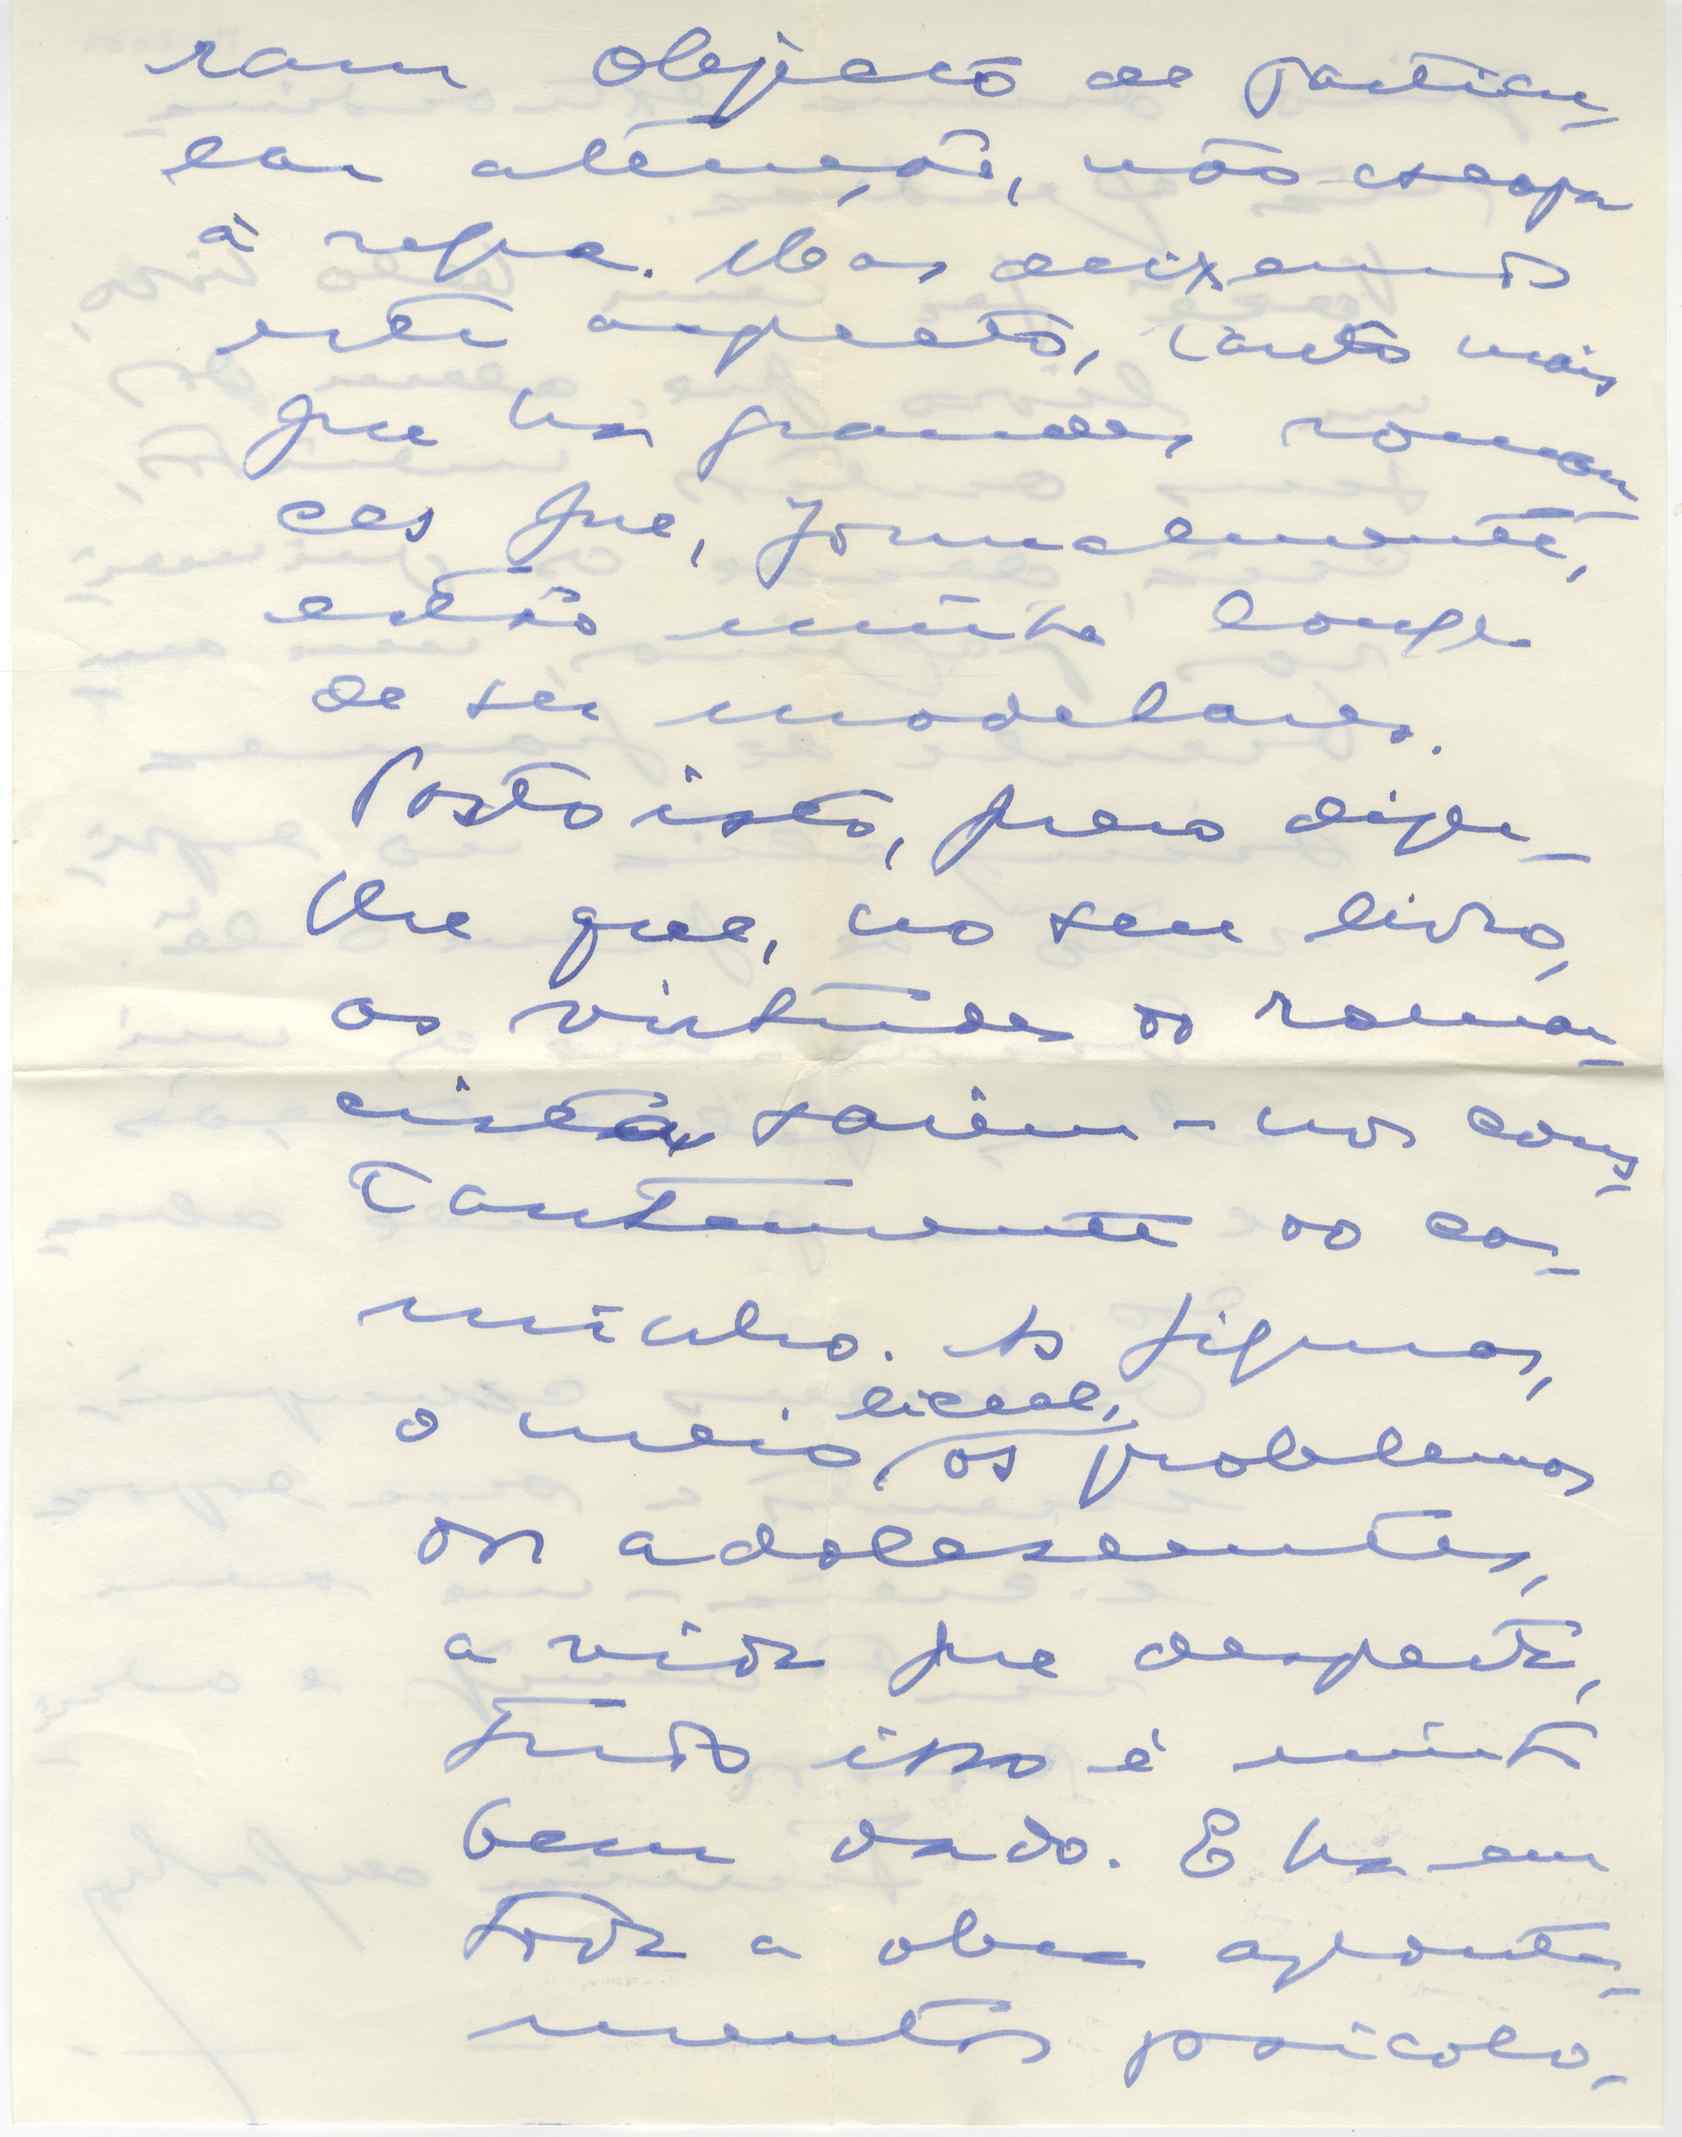 ram objecto de particu-
lar atenção, não escapa
à regra. Mas deixemos
este aspecto, tanto mais
que há grandes roman-
ces que, formalmente,
estão muito longe
de ser modelares.
Posto isto, quero dizer-
lhe que, no seu livro,
as virtudes do roman-
cista saiem-nos cons-
tantemente ao ca-
minho. As figuras,
o meio liceal, os problemas
dos adolescentes,
a vida que desperta,
tudo isso é muito
bem dado. E há em
toda a obra aponta-
mentos psicoló-